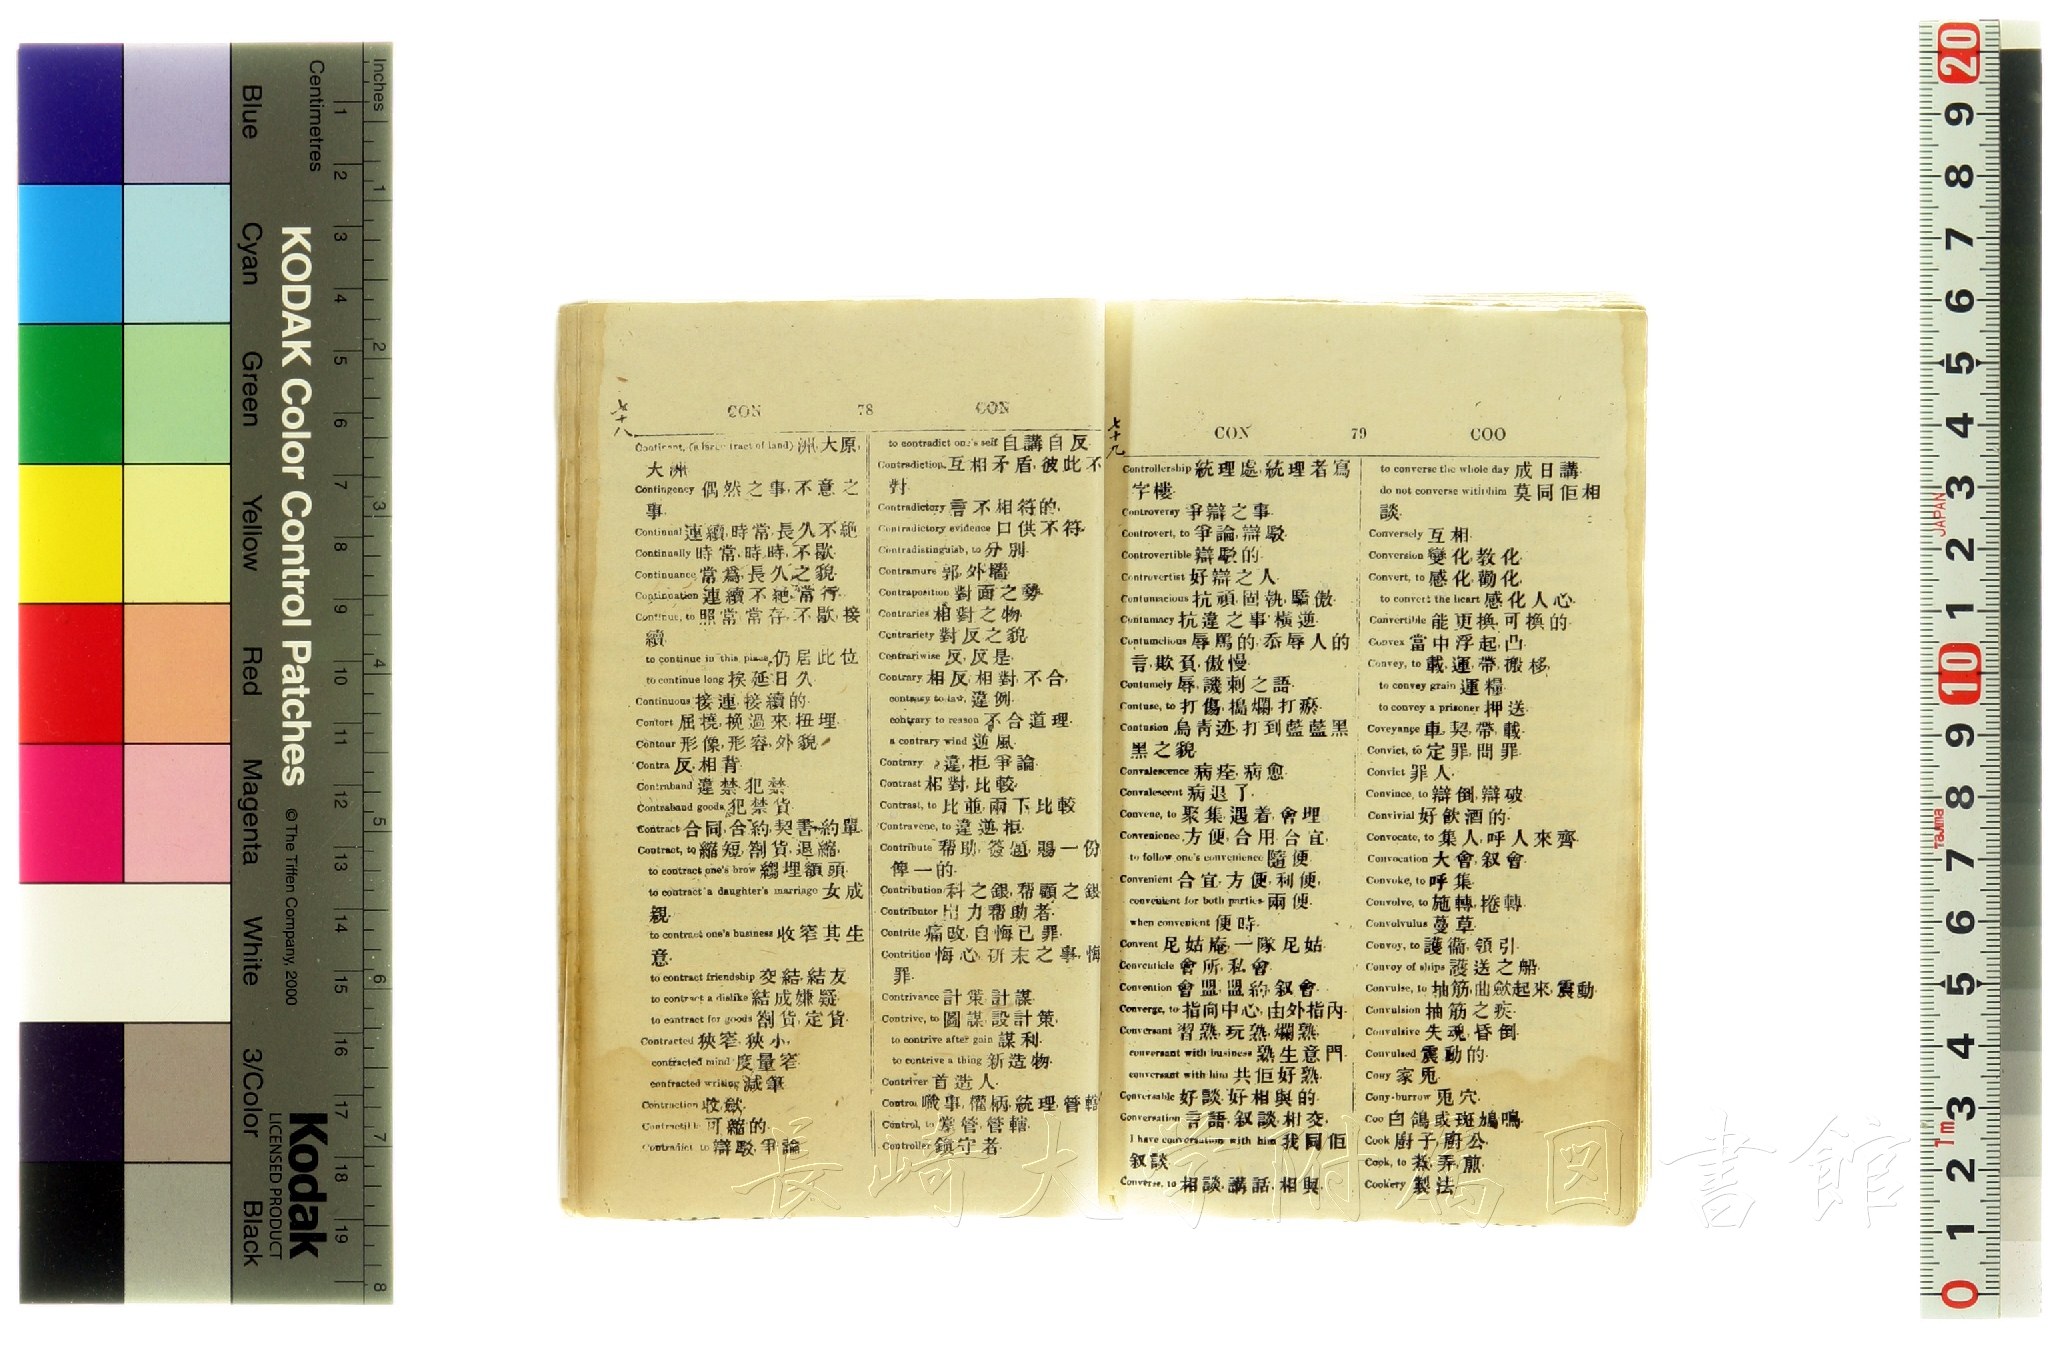 Inches
Centimetres
KODAK Color Control Patches
© The Tiffen Company, 2000
Kodak
LICENSED PRODUCT
Blue
Cyan
Green
Yellow
Red
Magenta
White
3/Color
Black
七十八
CON 78 CON
Continent, (a large tract of land) 洲,大原,
大洲
Contingency 偶然之事,不意之
事
Continual 連續,時常,長久不絕
Continually 時常,時時,不歇
Continuance 常爲,長久之貌
Continuation 連續不絕,常行
Continue, to 照常常存,不歇,接
續
to continue in this place, 仍居此位
to continue long 挨延日久
Continuous 接連,接續的
Contort 屈撓,挽過來,扭埋
Contour 形像,形容,外貌
Contra 反,相背
Contraband 違禁犯禁
Contraband goods 犯禁貨
Contract 合同,合約,契書,約單
Contract, to 縮短,劄貨,退縮
to contract one's brow 縐埋額頭
to contract a daughter's marriage 女成
親
to contract one's business 收窄其生
意
to contract friendship 交結,結友
to contract a dislike 結成嫌疑
to contract for goods 劄貨,定貨
Contracted 狹窄,狹小
contracted mind 度量窄
contracted writing 減筆
Contraction 收歛
Contractible 可縮的
Contradict, to 辯駁,爭論
to contradict one's self 自講自反
Contradiction, 互相矛盾,彼此不
對
Contradictory 言不相符的
Contradictory evidence 口供不符
Contradistinguish, to 分別
Contramure 郭,外墻
Contraposition 對面之勢
Contraries 相對之物
Contrariety 對反之貌
Contrariwise 反,反是
Contrary 相反,相對,不合,
contrary to law, 違例
contrary to reason 不合道理
a contrary wind 逆風
Contrary 違,拒爭論
Contrast 相對,比較
Contrast, to 比並,兩下比較
Contravene, to 違逆拒
Contribute 幫助,簽題,賜一份
俾一的
Contribution 科之銀,幫顧之銀
Contributor 出力幫助者
Contrite 痛改,自悔已罪
Contrition 悔心,研末之事,悔
罪
Contrivance 計策,計謀
Contrive, to 圖謀,設計策
to contrive after gain 謀利
to contrive a thing 新造物
Contriver 首造人
Control 職事,權柄,統理,管轄
Control, to 掌管,管轄
Controller 鎮守者
七十九
CON 79 COO
Controllership 統理處,統理者寫
字樓
Controversy 爭辯之事
Controvert, to 爭論,辯駁
Controvertible 辯駁的
Controvertist 好辯之人
Contumacious 抗頑,固執,驕傲
Contumacy 抗違之事,橫逆
Contumelious 辱罵的,忝辱人的
言,欺負,傲慢
Contumely 辱,譏刺之語
Contuse, to 打傷,搗爛,打瘀
Contusion 烏靑迹,打到藍藍黑
黑之貌
Convalescence 病痊,病愈
Convalescent 病退了
Convene, to 聚集,遇着,會埋
Convenience 方便,合用合宜
to follow one's convenience 隨便
Convenient 合宜,方便,利便,
convenient for both parties 兩便
when convenient 便時
Convent 尼姑庵,一隊尼姑
Conventicle 會所,私會
Convention 會盟,盟約,叙會
Converge, to 指向中心,由外指內
Conversant 習熟,玩熟,爛熟
conversant with business 熟生意門
conversant with him 共佢好熟
Conversable 好談,好相與的
Conversation 言語,叙談,相交,
I have conversation with him 我同佢
叙談
Converse, to 相談,講話,相與
to converse the whole day 成日講
do not converse with him 莫同佢相
談
Conversely 互相
Conversion 變化,敎化
Convert, to 感化,勸化
to convert the heart 感化人心
Convertible 能更換,可換的
Convex 當中浮起,凸
Convey, to 載,運,帶,搬移
to convey grain 運糧
to convey a prisoner 押送
Coveyange 車,契,帶,載
Convict, to 定罪,問罪
Convict 罪人
Convince, to 辯倒,辯破
Convivial 好飮酒的
Convocate, to 集人,呼人來齊
Convocation 大會,叙會
Convoke, to 呼集
Convolve, to 施轉,捲轉
Convolvulus 蔓草
Convoy, to 護衞,領引
Convoy of ships 護送之船
Convulse, to 抽筋,曲歛起來,震動
Convulsion 抽筋之疾
Convulsive 失魂,昏倒
Convulsed 震動的
Cony 家兎
Cony-burrow 兎穴
Coo 白鴿或斑鳩鳴
Cook 廚子,廚公
Cook, to 煮,弄,煎
Cookery 製法
長崎大学附属図書館
JAPAN
Tajima
1m